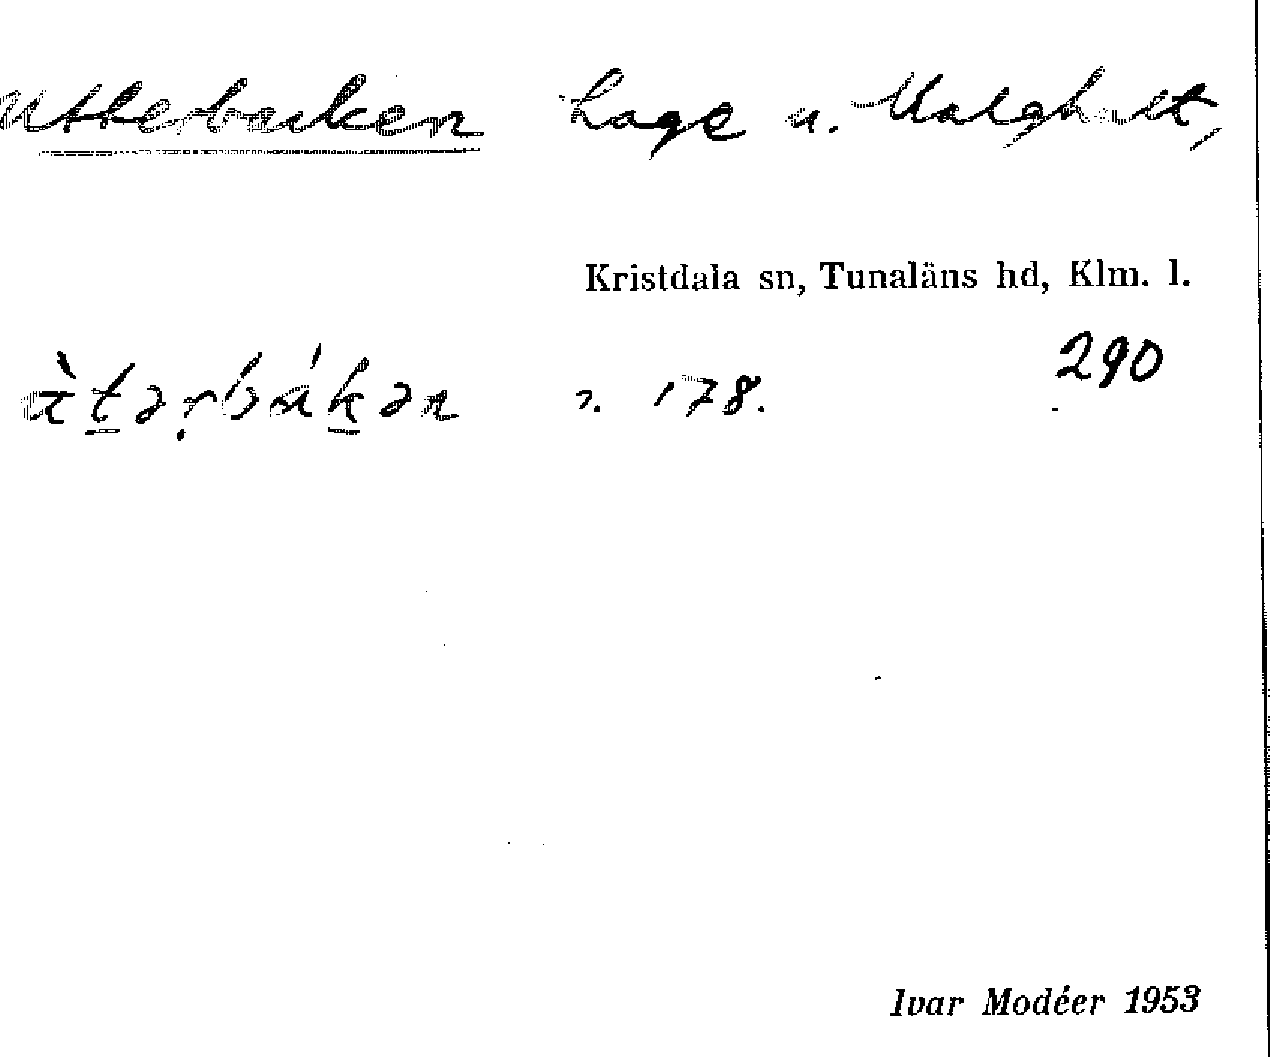 Utterbacken hage u. Malghult,
Kristdala sn, Tunaläns hd, Klm. l.
290
ə̀tərbákən n. 178.
Ivar Modéer 1953